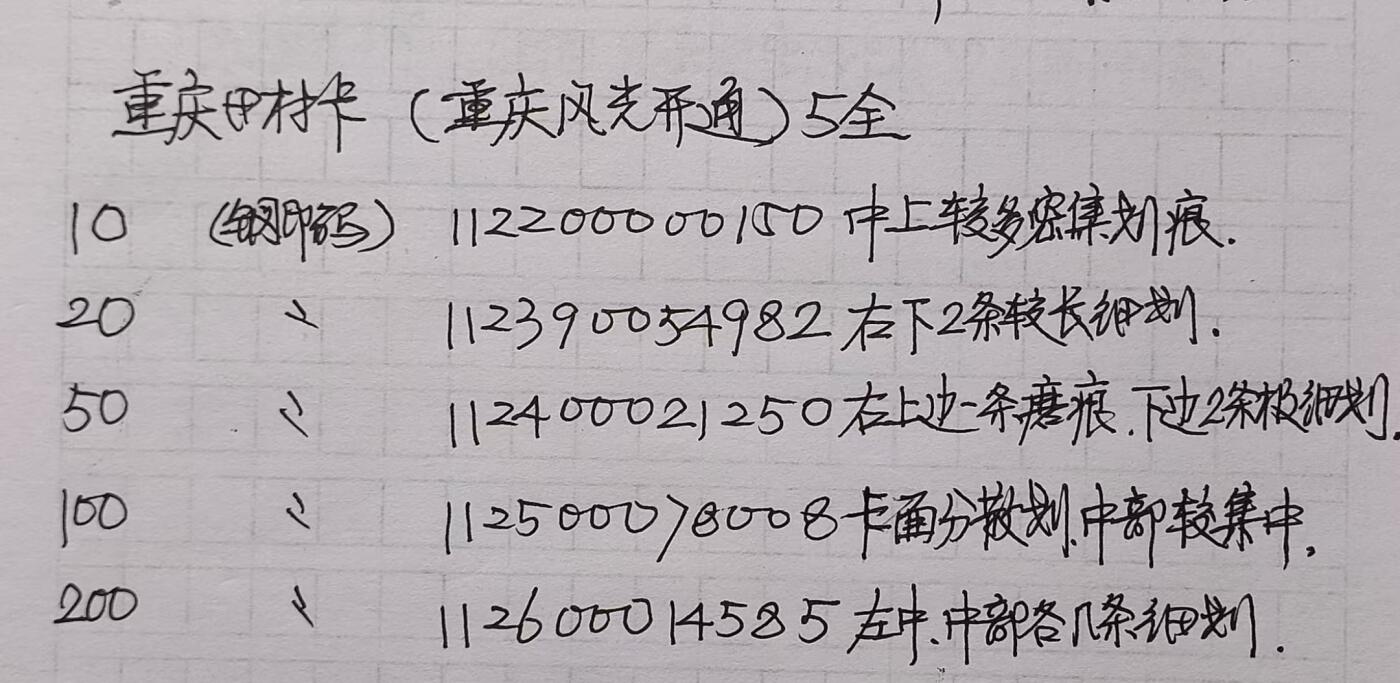 重庆田村卡（重庆风光开通）5全
10 （钢印码） 112200000150 中上较多密集划痕.
20 〃 112390054982 右下2条较长细划.
50 〃 112400021250 右上边一条磨痕.下边2条极细划.
100 〃 112500078008 卡面分散划.中部较集中.
200 〃 112600014585 左中.中部各几条细划.